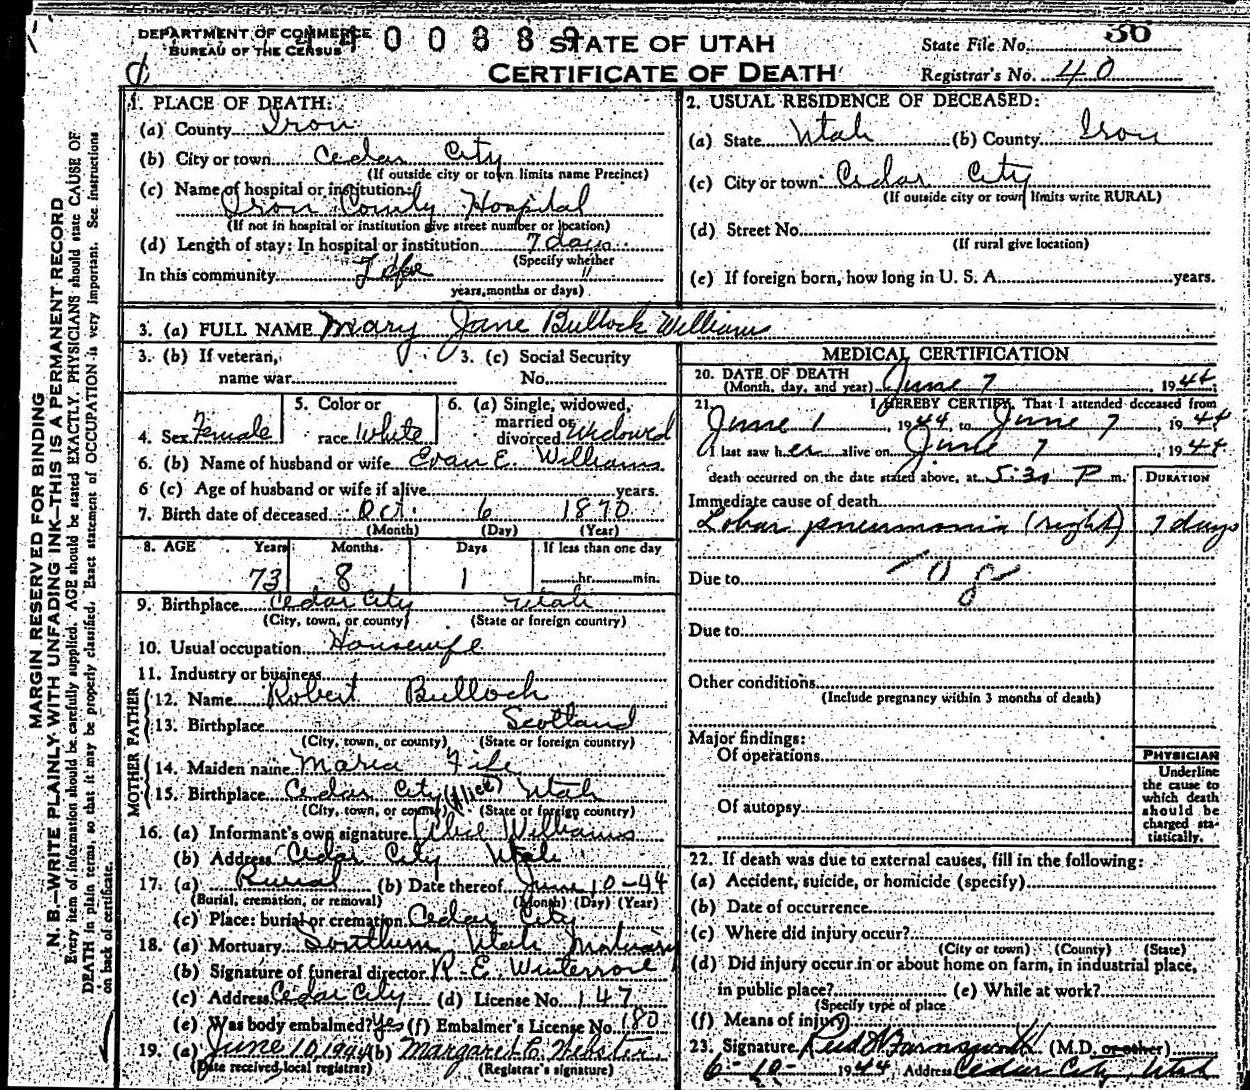 DEPARTMENT OF COMMERCE
BUREAU OF THE CENSUS
STATE OF UTAH
CERTIFICATE OF DEATH
State File No. 36
Registrar's No. 40
MARGIN RESERVED FOR BINDING
N. B.—WRITE PLAINLY WITH UNFADING INK—THIS IS A PERMANENT RECORD
Every item of information should be carefully supplied. AGE should be stated EXACTLY. PHYSICIANS should state CAUSE OF
DEATH in plain terms, so that it may be properly classified. Exact statement of OCCUPATION is very important. See instructions
on back of certificate.
1. PLACE OF DEATH:
(a) County Iron
(b) City or town Cedar City
(If outside city or town limits name Precinct)
(c) Name of hospital or institution:
Iron County Hospital
(If not in hospital or institution give street number or location)
(d) Length of stay: In hospital or institution 7 days
(Specify whether
In this community Life "
years, months or days)
2. USUAL RESIDENCE OF DECEASED:
(a) State Utah (b) County Iron
(c) City or town Cedar City
(If outside city or town limits write RURAL)
(d) Street No.
(If rural give location)
(e) If foreign born, how long in U. S. A. years.
3. (a) FULL NAME Mary Jane Bulloch Williams
3. (b) If veteran, name war
3. (c) Social Security No.
4. Sex Female
5. Color or race White
6. (a) Single, widowed, married or divorced Widowed
6. (b) Name of husband or wife Evan E. Williams
6 (c) Age of husband or wife if alive years.
7. Birth date of deceased Oct. 6 1870
(Month) (Day) (Year)
8. AGE Years Months Days If less than one day
73 8 1 hr. min.
9. Birthplace Cedar City Utah
(City, town, or county) (State or foreign country)
10. Usual occupation Housewife
11. Industry or business
FATHER
12. Name Robert Bulloch
13. Birthplace Scotland
(City, town, or county) (State or foreign country)
MOTHER
14. Maiden name Maria Fife
15. Birthplace Cedar City Utah
(City, town, or county) (State or foreign country)
(Alice)
16. (a) Informant's own signature Alice Williams
(b) Address Cedar City Utah
17. (a) Burial (b) Date thereof June 10-44
(Burial, cremation, or removal) (Month) (Day) (Year)
(c) Place: burial or cremation Cedar City
18. (a) Mortuary Southern Utah Mortuary
(b) Signature of funeral director R. E. Winterrose
(c) Address Cedar City (d) License No. 147
(e) Was body embalmed? Yes (f) Embalmer's License No. 180
19. (a) June 10, 1944 (b) Margaret E. Webster
(Date received local registrar) (Registrar's signature)
MEDICAL CERTIFICATION
20. DATE OF DEATH
(Month, day, and year) June 7 1944
21. I HEREBY CERTIFY, That I attended deceased from
June 1, 1944, to June 7, 1944
I last saw her alive on June 7, 1944
death occurred on the date stated above, at 5:30 P m.
DURATION
Immediate cause of death
Lobar pneumonia (right) 7 days
Due to 108
Due to
Other conditions
(Include pregnancy within 3 months of death)
Major findings:
Of operations
Of autopsy
PHYSICIAN
Underline
the cause to
which death
should be
charged sta-
tistically.
22. If death was due to external causes, fill in the following:
(a) Accident, suicide, or homicide (specify)
(b) Date of occurrence
(c) Where did injury occur?
(City or town) (County) (State)
(d) Did injury occur in or about home on farm, in industrial place,
in public place? (e) While at work?
(Specify type of place
(f) Means of injury
23. Signature Reed A Farnsworth (M.D. or other)
6-10-1944 Address Cedar City, Utah